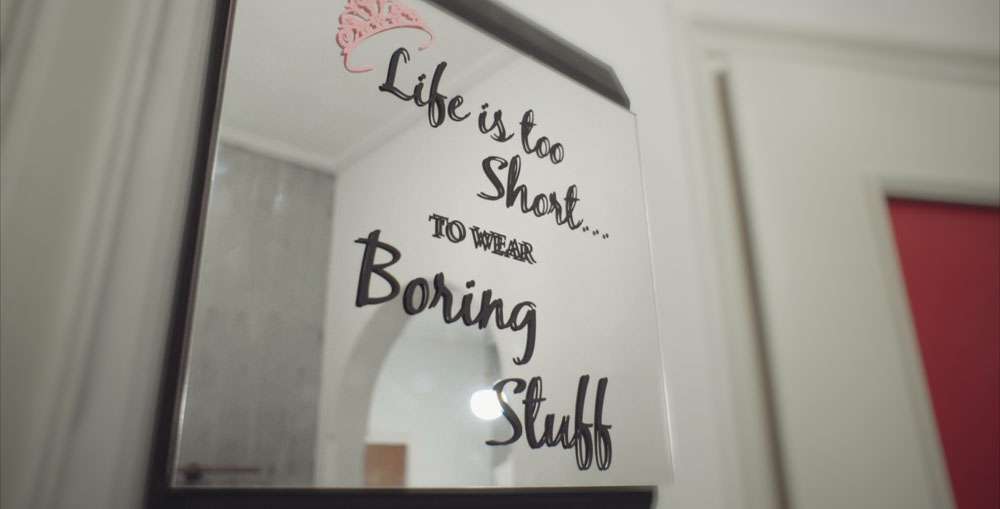 Life is too
Short...
TO WEAR
Boring
Stuff